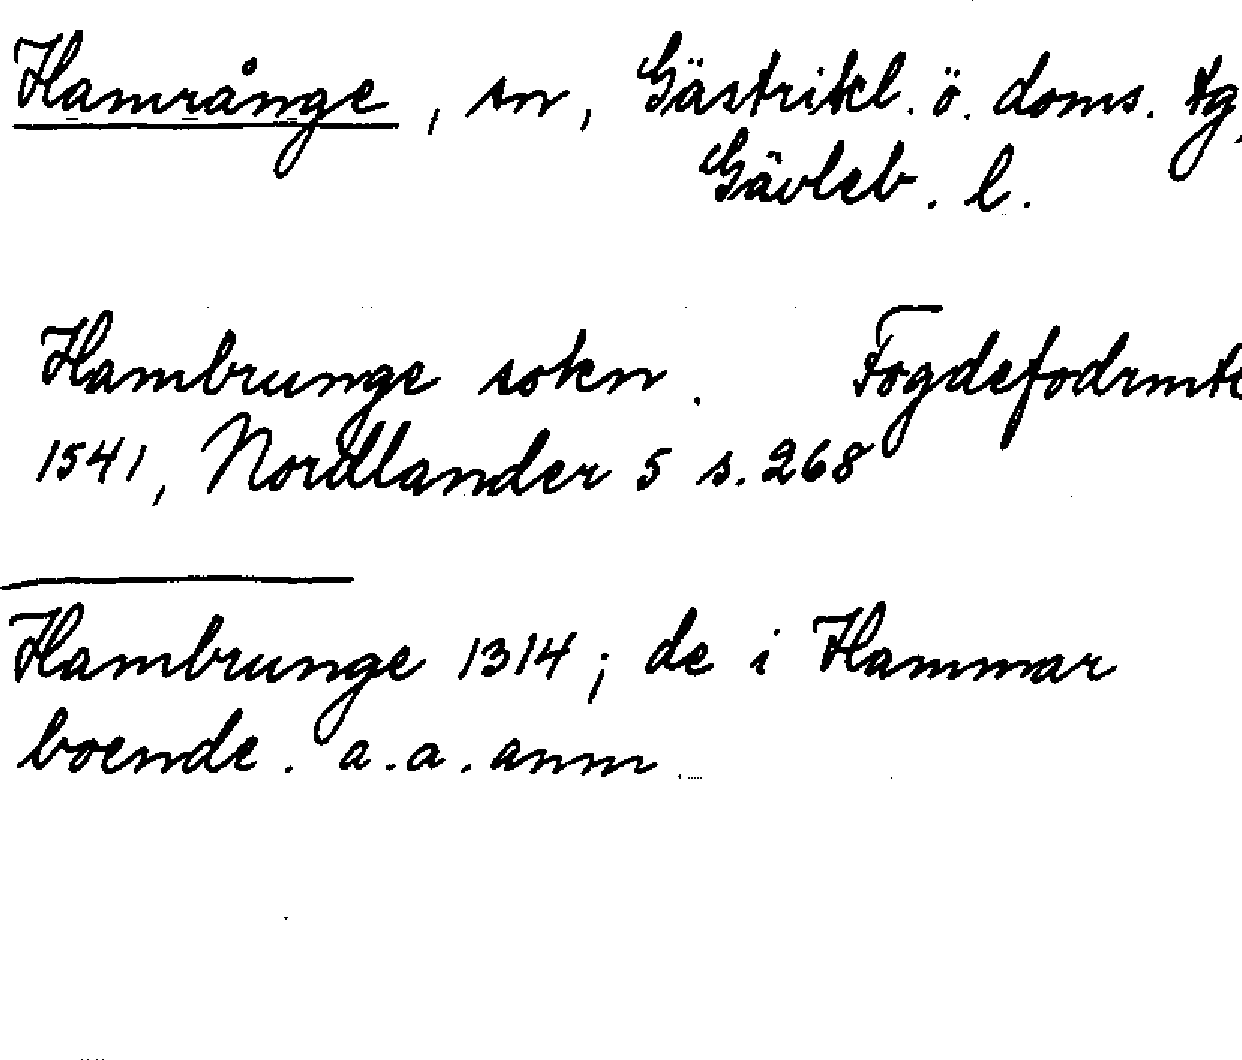 Hamrånge, sn, Gästrikl. ö. doms. tg,
Gävleb. l.
Hambrunge sokn. Fogdefodrmtk
1541, Nordlander 5 s. 268
Hambrunge 1314; de i Hammar
boende. a.a. anm